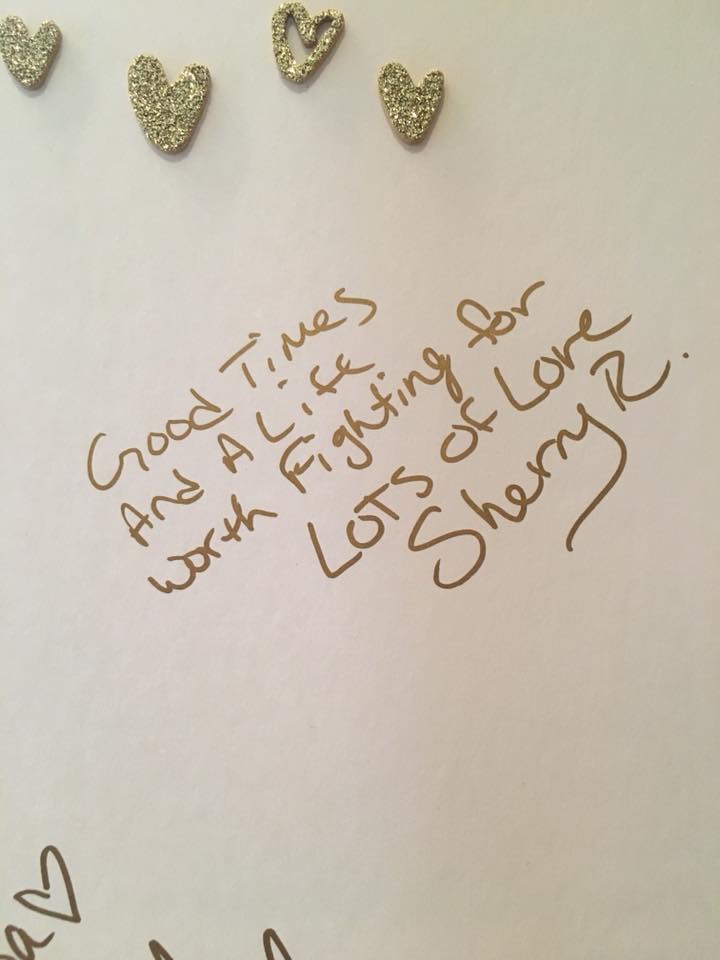 Good Times
And A Life
worth Fighting for
LOTS OF Love
Sherry R.